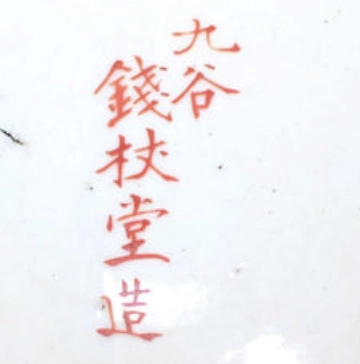 九谷
錢杖堂造